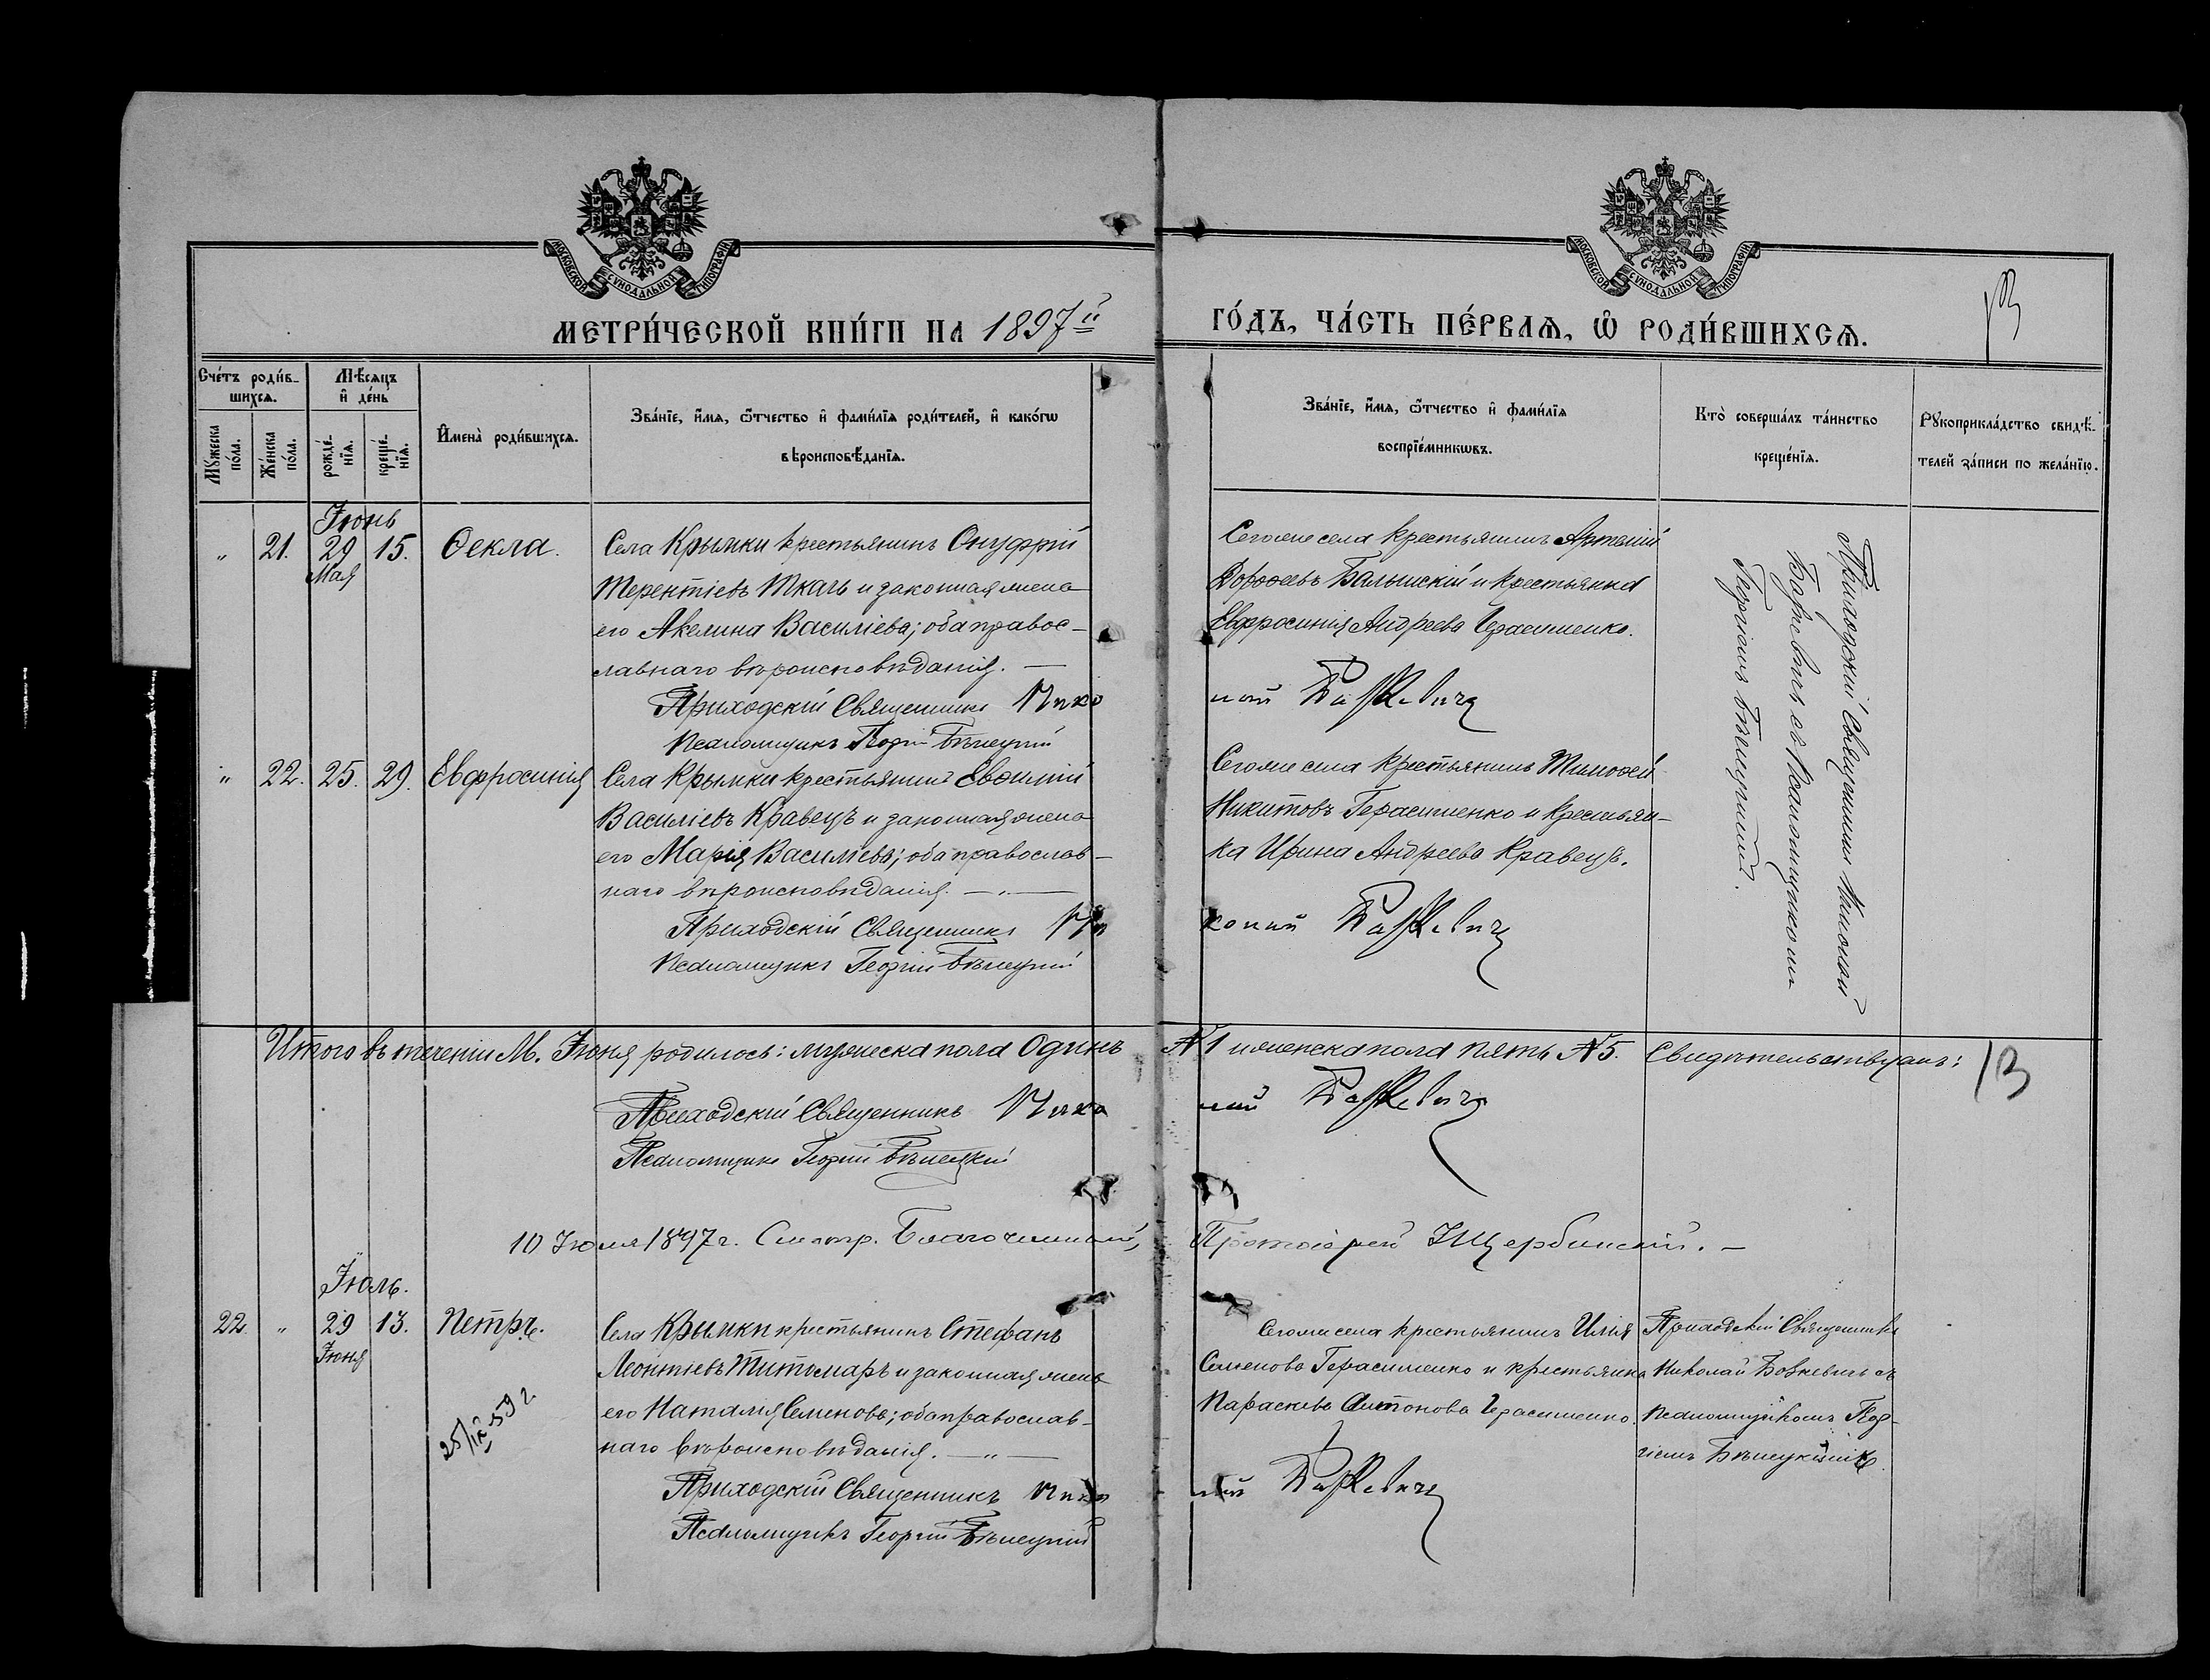 МОСКОВСКОЙ СѴНОДАЛЬНОЙ ТИПОГРАФІИ
МОСКОВСКОЙ СѴНОДАЛЬНОЙ ТИПОГРАФІИ
МЕТРИ́ЧЕСКОЙ КНИ́ГИ НА 1897й
ГО́ДЪ, ЧА́СТЬ ПЕ́РВАѦ, Ѡ РОДИ́ВШИХСѦ.
13
Сче́тъ роди́в-
шихсѧ.
Мѣ́сѧцъ
и҆ де́нь
Мꙋжеска
по́ла.
Же́нска
по́ла.
рожде́-
нїѧ.
креще́-
нїѧ.
И҆мена̀ роди́вшихсѧ.
Зва́нїе, и҆́мѧ, ѻ҆́тчество и҆ фами́лїѧ роди́телей, и҆ како́гѡ
вѣроисповѣ́данїѧ.
Зва́нїе, и҆́мѧ, ѻ҆́тчество и҆ фами́лїѧ
воспрїе́мникѡвъ.
Кто̀ соверша́лъ та́инство
креще́нїѧ.
Рꙋкоприкла́дство свидѣ́-
телей за́писи по жела́нїю.
Іюнь
„ 21. 29 15. Ѳекла.
Мая
Села Крымки крестьянинъ Онуфрій
Терентіевъ Ткачъ и законная жена
его Акелина Василіева; оба правос-
лавнаго вѣроисповѣданія. —
Приходскій Священникъ Нико
Псаломщикъ Георгій Бѣлецкій
Тогоже села крестьянинъ Артемій
Дороѳеевъ и крестьянка
Евфросинія Андреева Герасименко.
лай
Приходскій Священникъ Николай
съ Псаломщикомъ
Георгіемъ Бѣлецкимъ.
„ 22. 25. 29. Евфросинія
Села Крымки крестьянинъ Евѳимій
Василіевъ Кравецъ и законная жена
его Марія Василіева; оба православ-
наго вѣроисповѣданія. — „ —
Приходскій Священникъ Ни
Псаломщикъ Георгій Бѣлецкій
Тогоже села крестьянинъ Тимоѳей
Никитовъ Герасименко и крестьян-
ка Ирина Андреева Кравецъ.
колай
Итого въ теченіи М. Іюня родилось: мужеска пола Одинъ № 1 и женска пола пять № 5. Свидѣтельствуемъ:
13
Приходскій Священникъ Нико
лай
Псаломщикъ Георгій Бѣлецкій
10 Іюля 1897 г. Смотр. Благочинный, Протоіерей Щербинскій. —
Іюль.
22 „ 29 13. Петръ.
Іюня
25/IX 59 г.
Села Крымки крестьянинъ Стефанъ
Леонтіевъ Титомаръ и законная жена
его Наталія Семенова; оба православ-
наго вѣроисповѣданія. — „ —
Приходскій Священникъ Нико
Псаломщикъ Георгій Бѣлецкій
Тогоже села крестьянинъ Илія
Семеновъ Герасименко и крестьянка
Параскева Антонова Герасименко.
лай
Приходскій Священникъ
Николай съ
Псаломщикомъ Геор-
гіемъ Бѣлецкимъ.